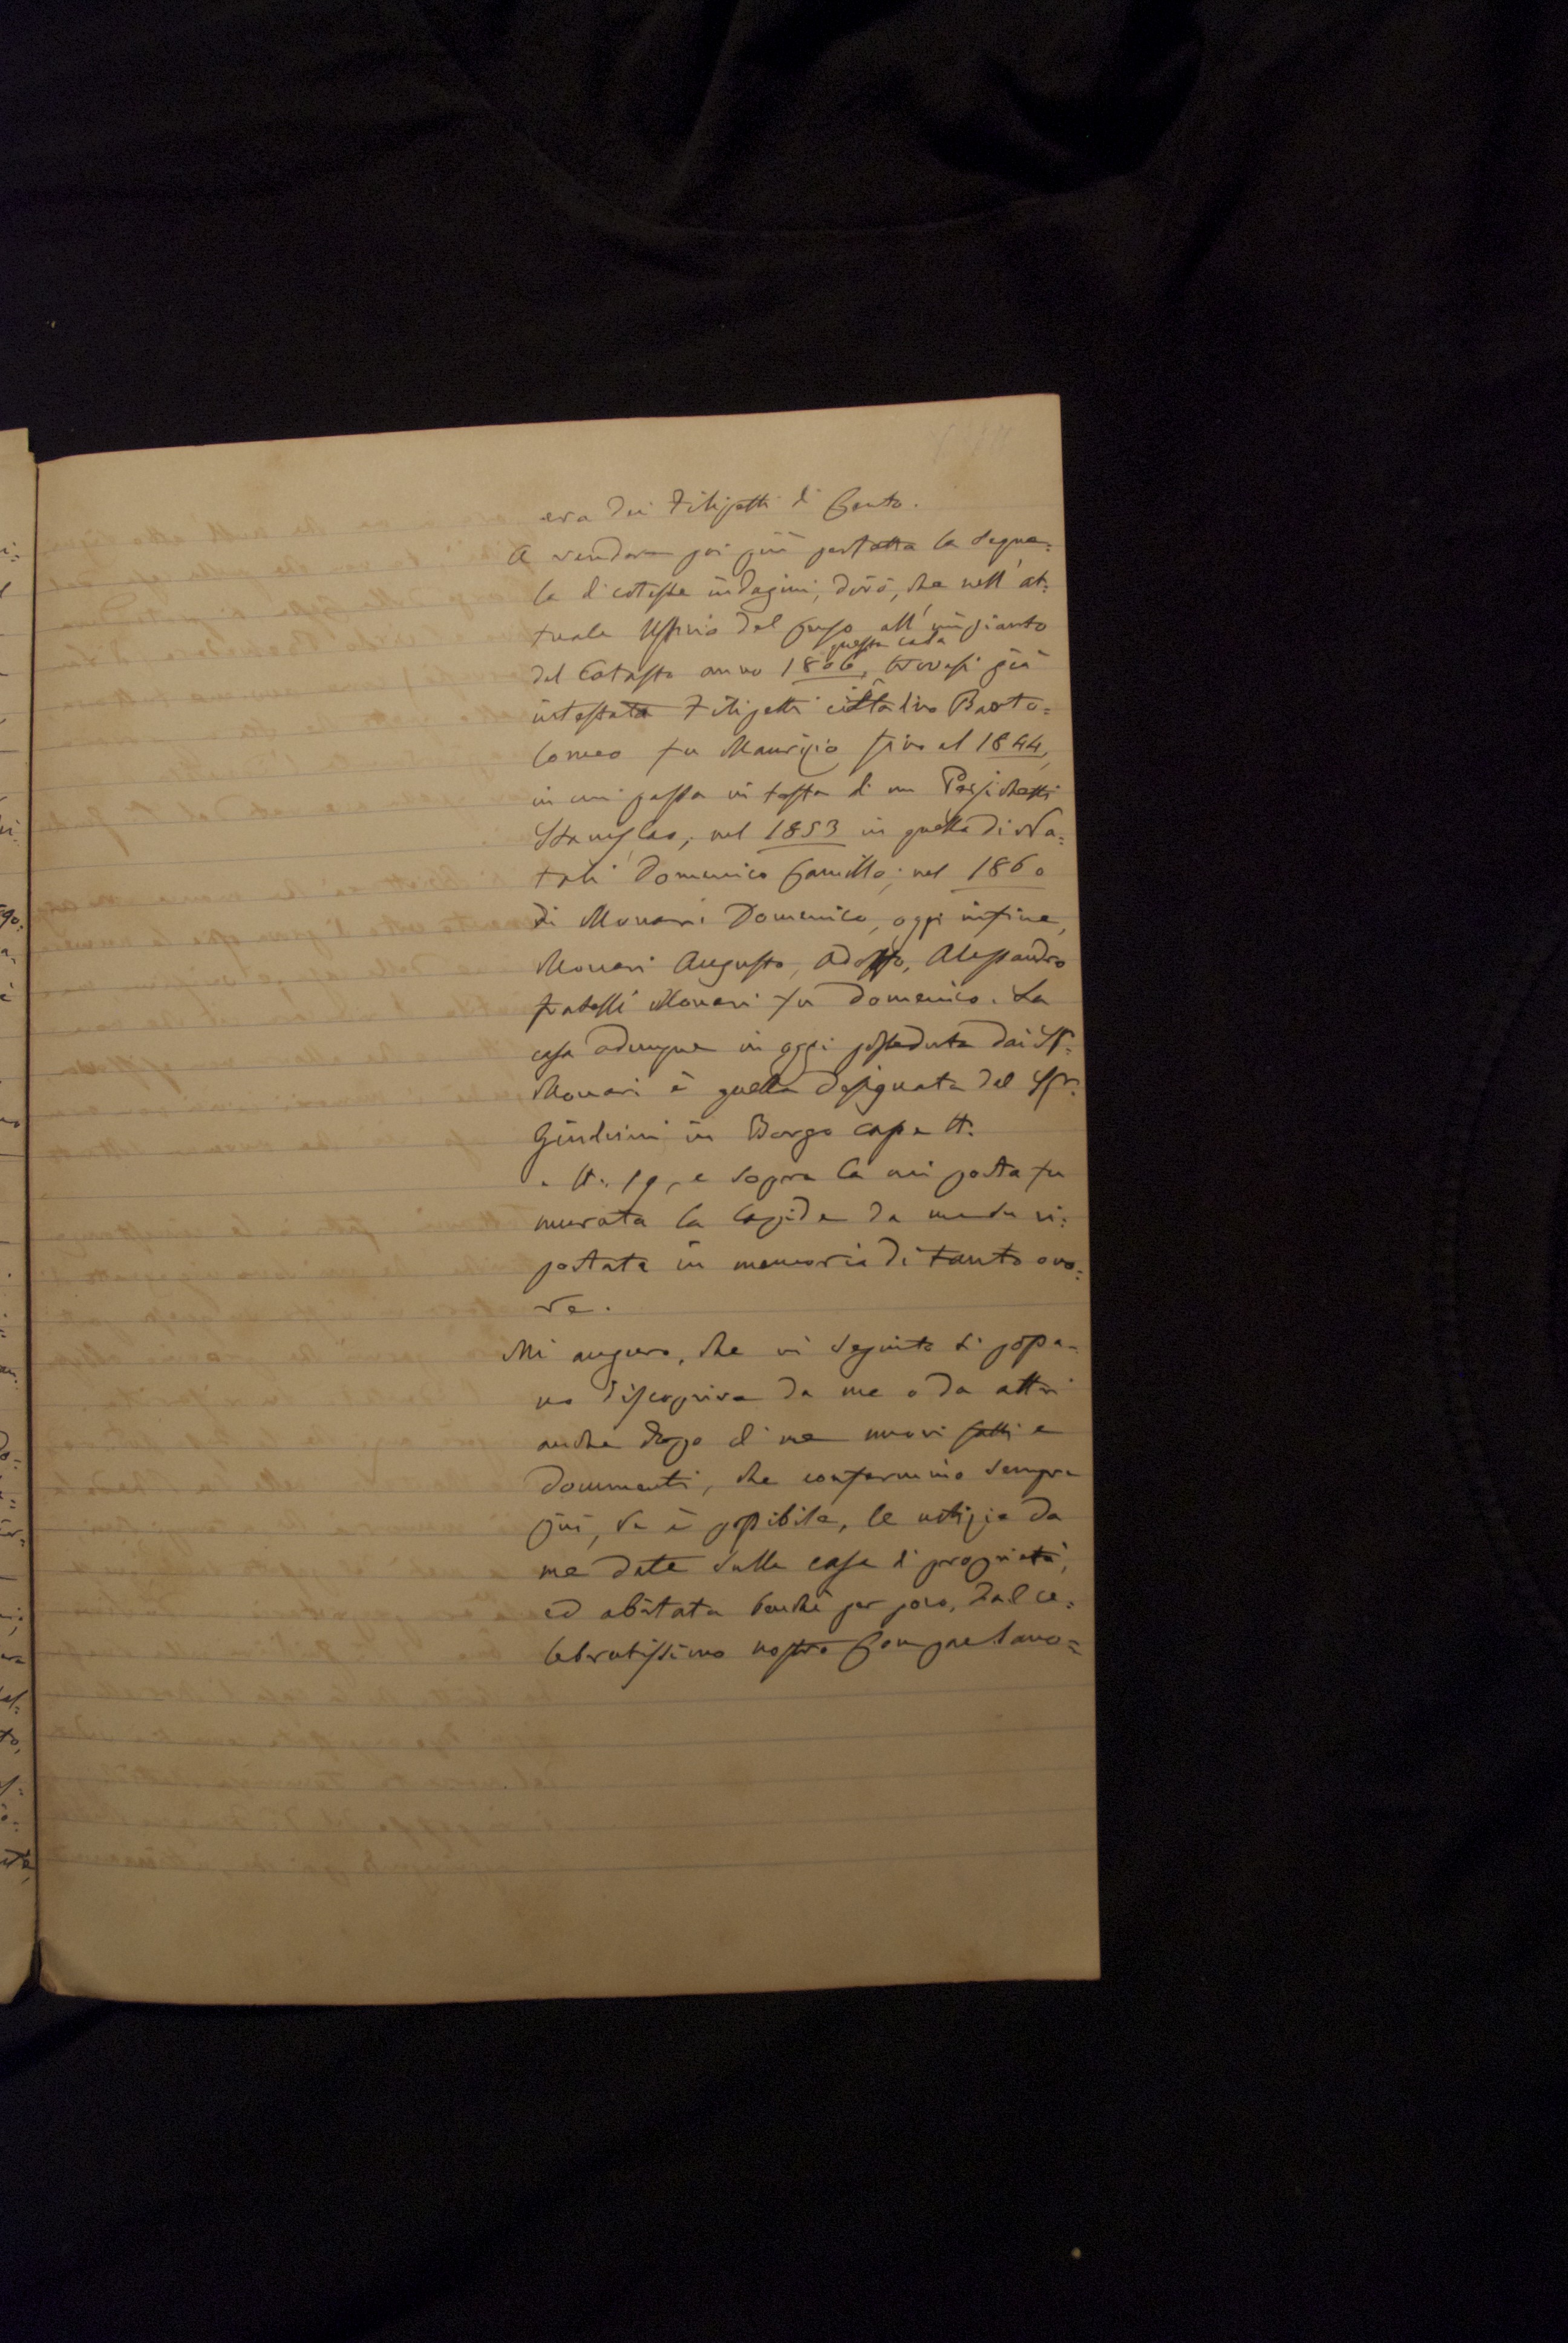 era dei Filipetti di Cento.
A rendere poi più perfetta la segue=
la di coteste indagini, dirò, che nell'at=
tuale Uffizio del Censo all'impianto
del Catasto anno 1806, questa casa trovasi già
intestata Filipetti cittadino Barto=
lomeo fu Maurizio fino al 1844,
in cui passa in testa di un Persichetti
Stanislao, nel 1853 in quella di Na=
tali Domenico Camillo; nel 1860
di Monari Domenico, oggi infine,
Monari Augusto, Adolfo, Alessandro
fratelli Monari fu Domenico. La
casa adunque in oggi posseduta dai SS.
Monari è quella designata dal Sigr.
Giudicini in Borgo Casse N.
N. 19, e sopra la cui porta fu
murata la lapide da me su ri=
portata in memoria di tanto ono=
re.
Mi auguro, che in seguito si possa=
no discoprire da me o da altri
anche dopo di me nuovi fatti e
documenti, che confermino sempre
più, se è possibile, le notizie da
me date sulla casa di proprietà,
ed abitata benchè per poco, dal ce=
lebratissimo nostro Compaesano=